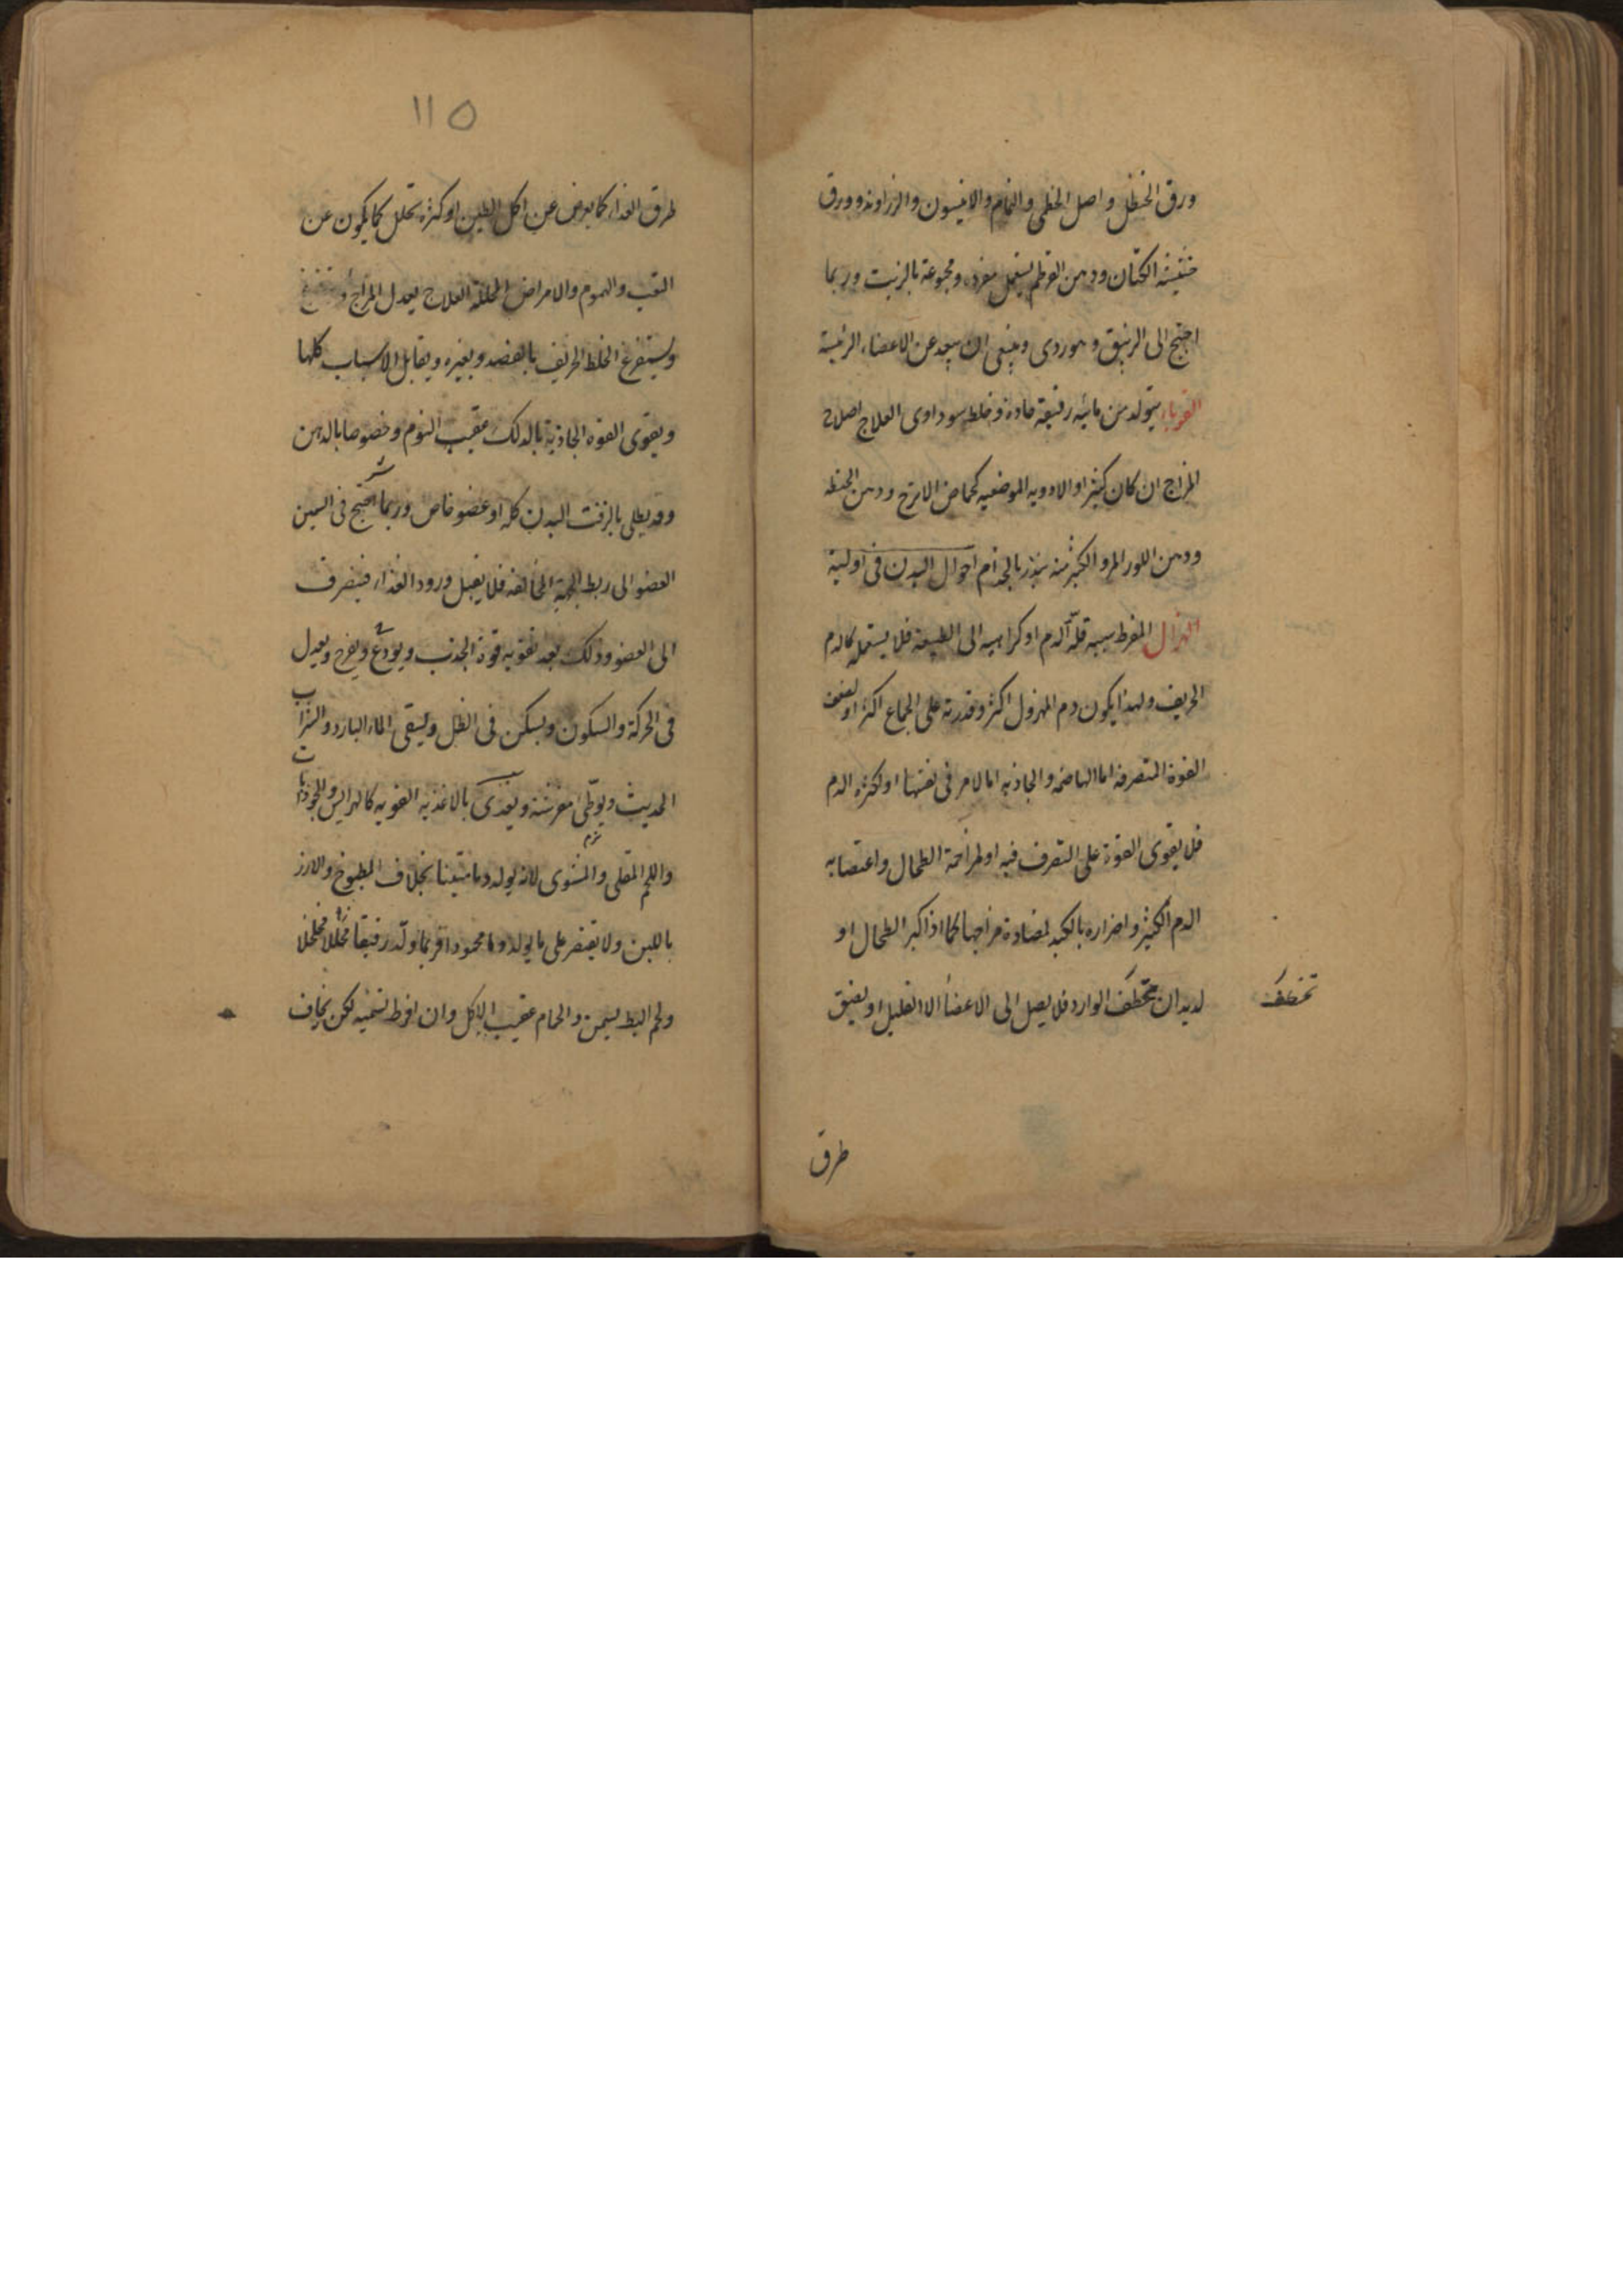 ورق الحنظل واصل الخطمى والنمام والانيسون والزراوند وورق
حشيشة الكتان ودهن القرطم يستعمل مفردة ومجموعة بالزيت وربما
احتيج الى الزيبق وهو ردى وينبغى ان يبعد عن الاعضاء الرئيسة
القوباء يتولد من مائية رقيقة حادة وخلط سوداوى العلاج اصلاح
المزاج ان كان كثيرا والادويه الموضعيه كحماض الاترج ودهن الحنطه
ودهن اللوز المر والكثير منه ينذر بالجذام احوال البدن فى اوليته
الهزال المفرط سببه قلة الدم او كراهيه الى الطبيعة فلا يستعمله كالدم
الحريف ولهذا يكون دم المهزول اكثر وقدرته على الجماع اكثر او لضعف
القوة المتصرفه اما الهاضمه والجاذبه اما لامر فى نفسها او لكثره الدم
فلا يقوى القوة على التصرف فيه او لمزاحمة الطحال واغتصابه
الدم الكثير واضراره بالكبد لمضادة مزاجها كما اذا كبر الطحال او
لديدان تختطف الوارد فلا يصل الى الاعضأ الا القليل او لضيق
تختطف
طرق
١١٥
طرق الغذاء كما يعرض عن اكل الطين او كثره تحلل كما يكون عن
التعب والهموم والامراض المحللة العلاج يعدل المزاج و
ويستفرغ الخلط الحريف بالفصد وبغيره ويقابل الاسباب كلها
ويقوى القوه الجاذبة بالدلك عقيب النوم وخصوصا بالدهن
وقد يطلى بالزفت البدن كله او عضو خاص وربما احتيج فى السمين
العضو الى ربط الجهة المخالفه فلا يقبل ورود الغذاء فينصرف
الى العضو وذلك بعد تقويه قوة الجذب ويودع ويفرح ويعدل
فى الحركة والسكون ويسكن فى الظل ويسقى الماء البارد والشراب
الحديث ويوطى مفرشه ويغذى بالاغذيه القويه كالهرايس والجوذابات
واللحم المقلى والمشوى لانه يولد دما متينا بخلاف المطبوخ والارز
باللبن ولا يقتصر على ما يولد دما محمودا فربما ولد رقيقا محللا مخلخلا
ولحم البط يسمن والحمام عقيب الاكل وان افرط تسمينه لكن يخاف